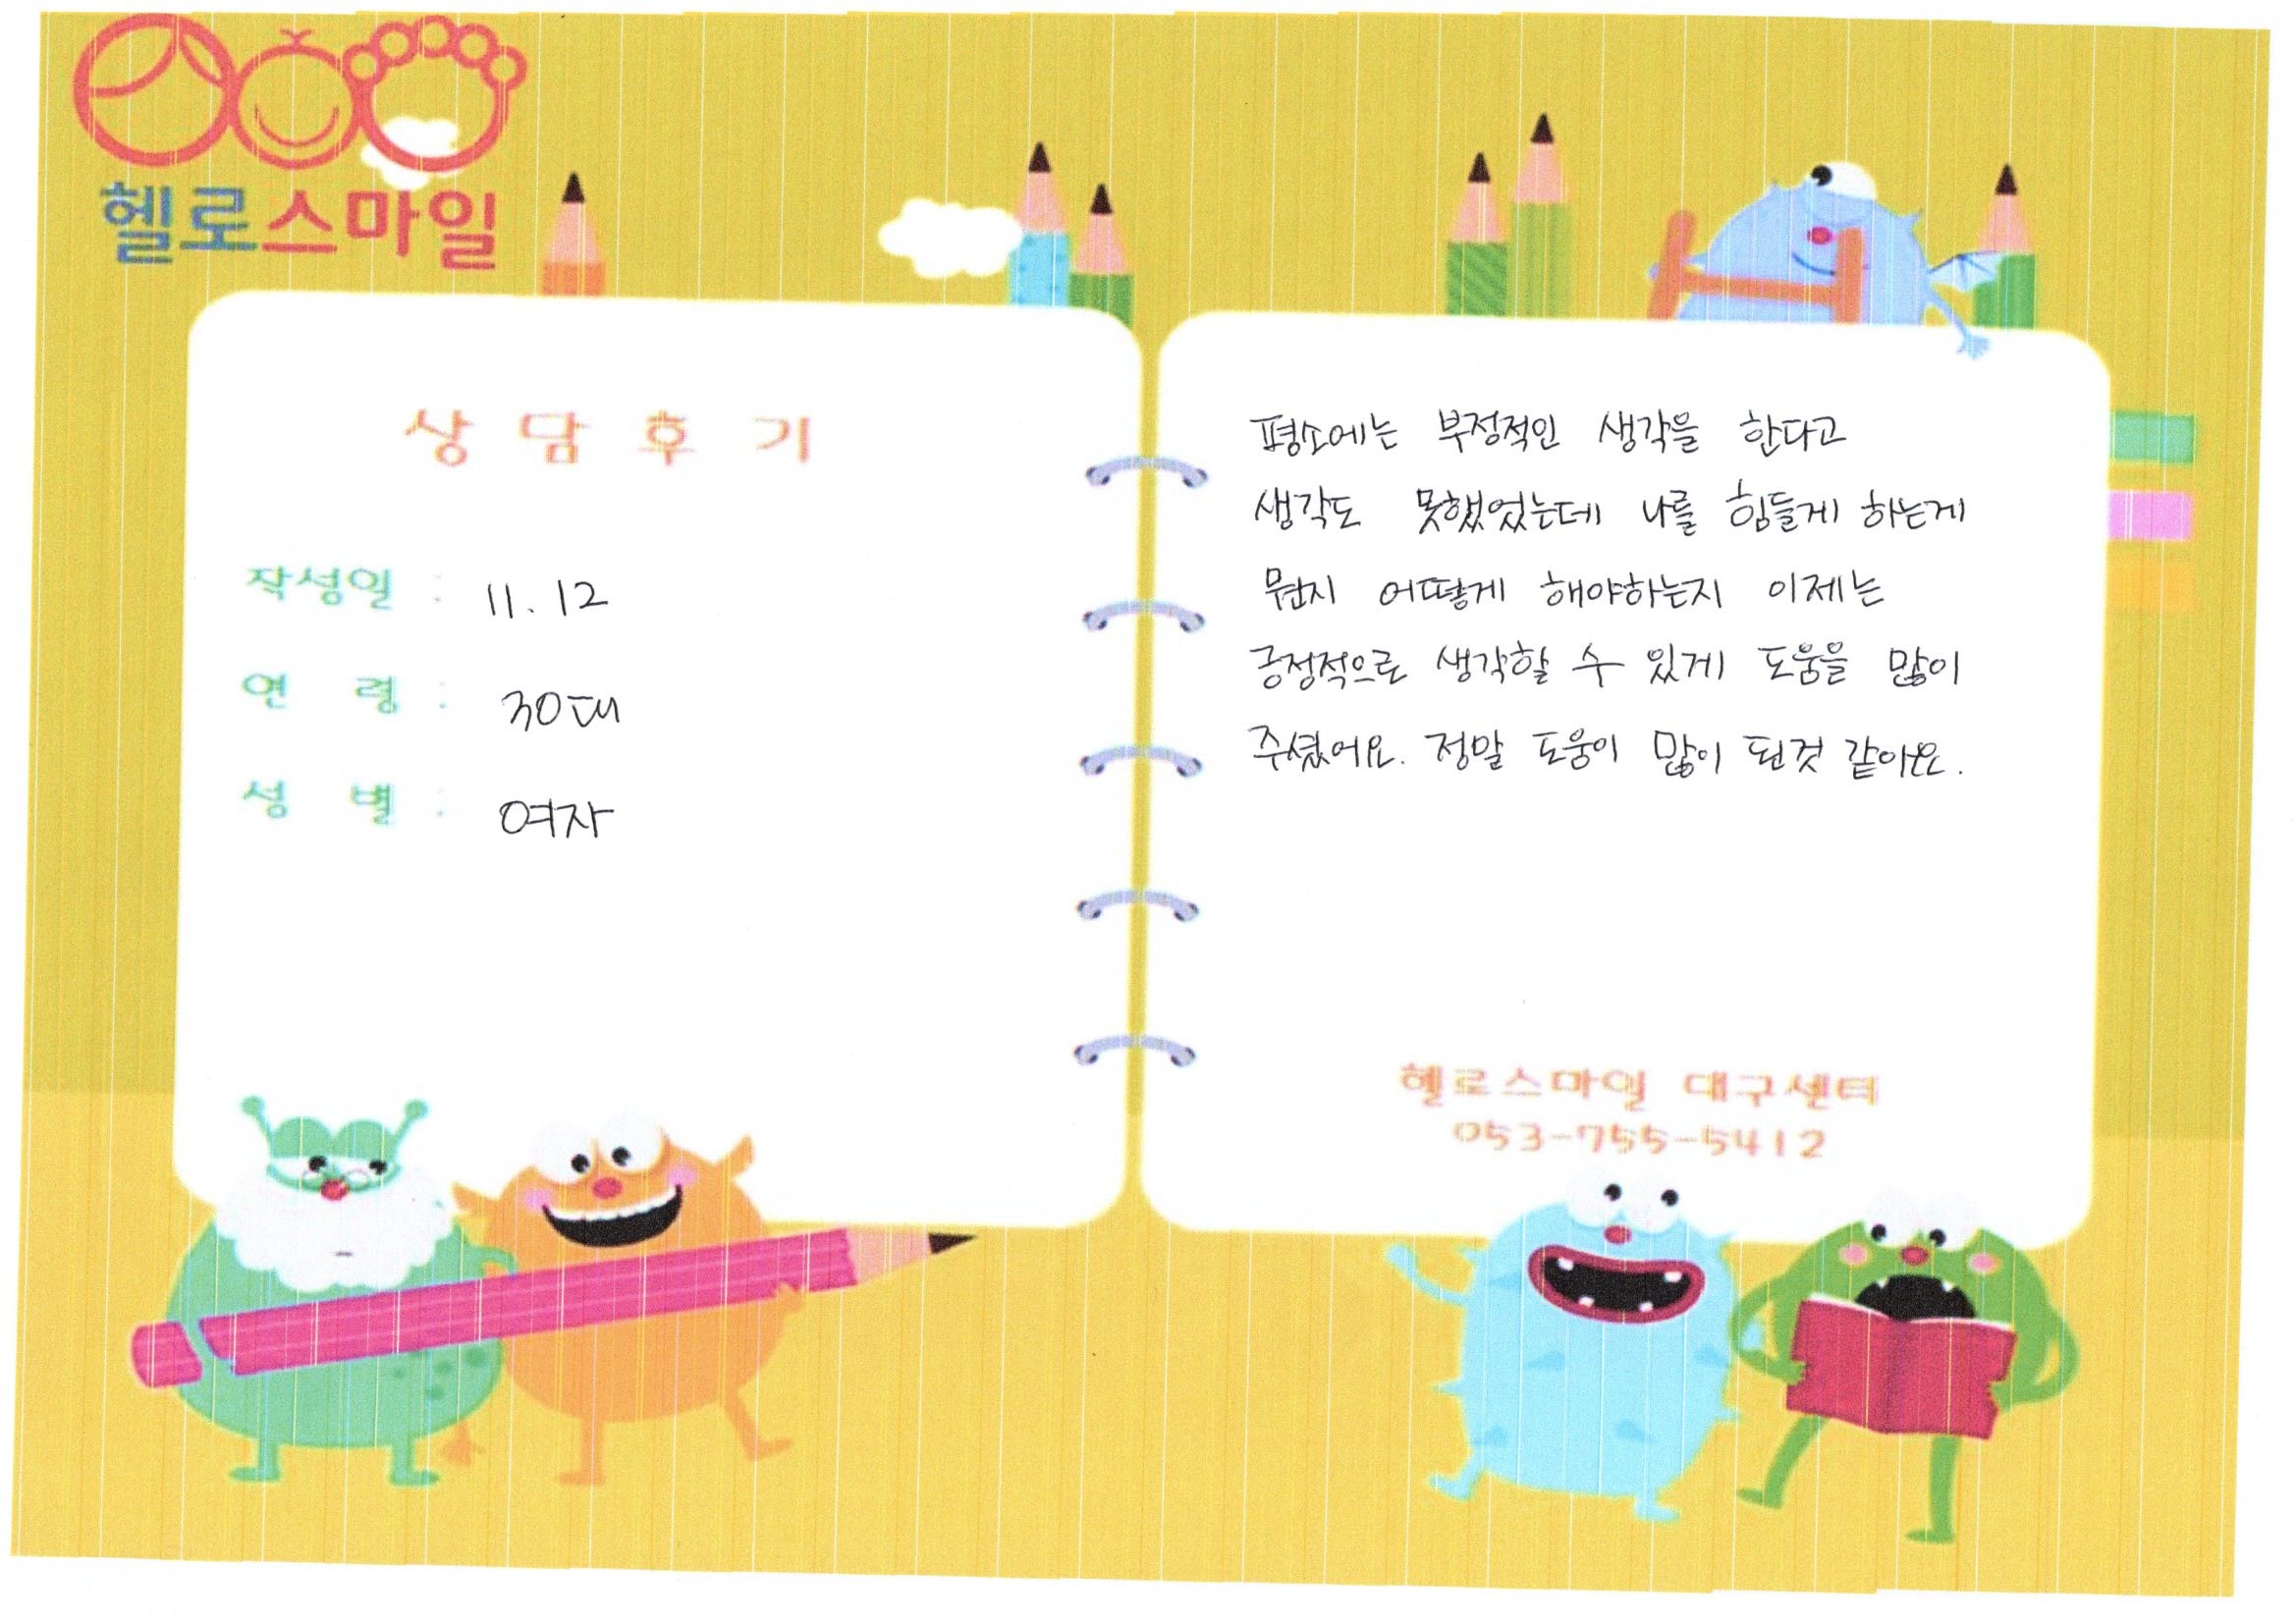 헬로스마일
상담후기
작성일 : 11. 12
연 령 : 30대
성 별 : 여자
평소에는 부정적인 생각을 한다고
생각도 못했었는데 나를 힘들게 하는게
뭔지 어떻게 해야하는지 이제는
긍정적으로 생각할 수 있게 도움을 많이
주셨어요. 정말 도움이 많이 된것 같아요.
헬로스마일 대구센터
053-755-5412